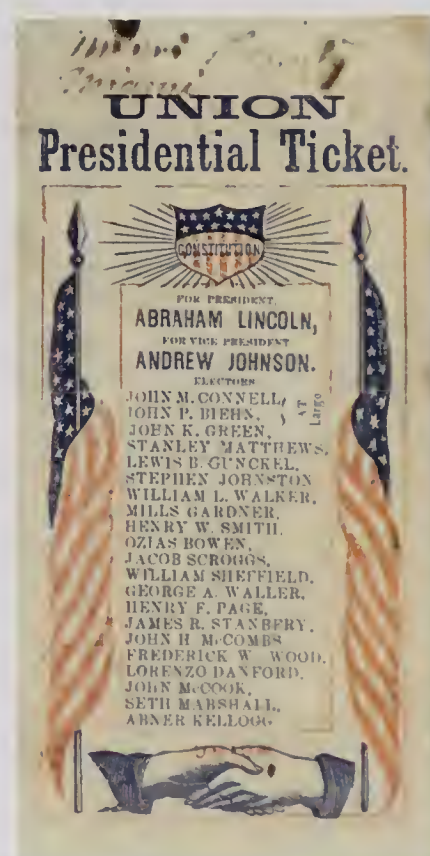 Miami County
UNION
Presidential Ticket.
CONSTITUTION
FOR PRESIDENT,
ABRAHAM LINCOLN,
FOR VICE PRESIDENT
ANDREW JOHNSON.
ELECTORS
JOHN M. CONNELL, AT
JOHN P. BIEHN, Large
JOHN K. GREEN,
STANLEY MATTHEWS,
LEWIS B. GUNCKEL,
STEPHEN JOHNSTON
WILLIAM L. WALKER,
MILLS GARDNER,
HENRY W. SMITH,
OZIAS BOWEN,
JACOB SCROGGS,
WILLIAM SHEFFIELD,
GEORGE A. WALLER,
HENRY F. PAGE,
JAMES R. STANBERY,
JOHN H McCOMBS
FREDERICK W. WOOD,
LORENZO DANFORD,
JOHN McCOOK,
SETH MARSHALL,
ABNER KELLOGG